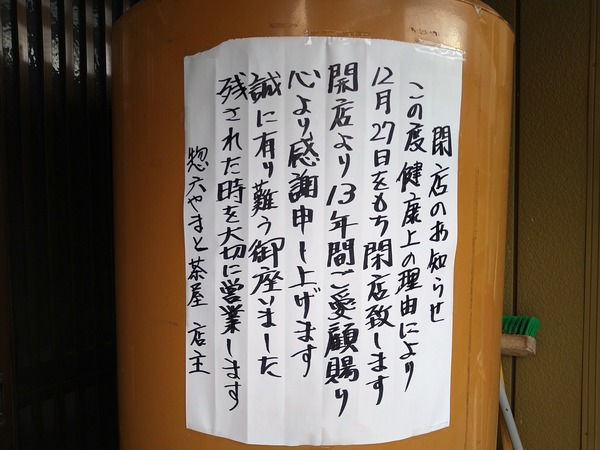 閉店のお知らせ
この度健康上の理由により
12月27日をもち閉店致します
開店より13年間ご愛顧賜り
心より感謝申し上げます
誠に有り難う御座いました
残された時を大切に営業します
惣六やまと茶屋 店主